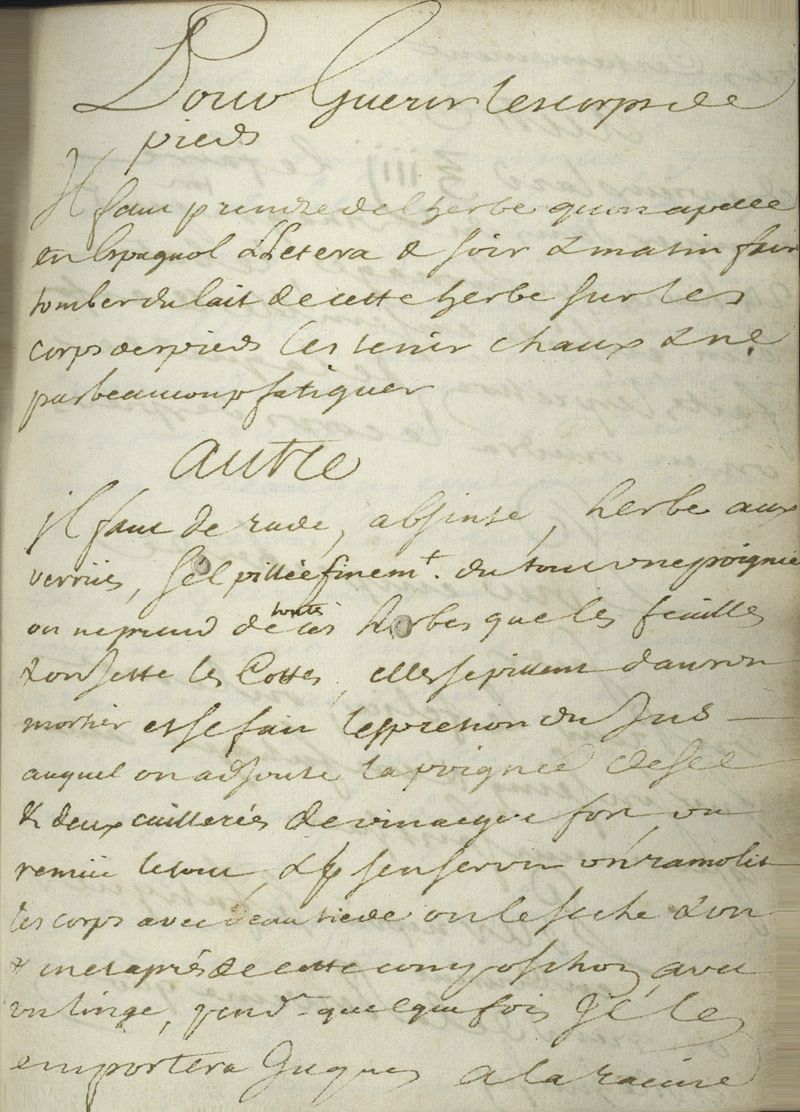 Pour Guerir les corps de
pieds
Il faut prendre de l herbe qu on apelle
en Espagnol & soir & matin fair
tomber du lait de cette herbe sur les
corps des pieds les tenir chaux & ne
pas beaucoup fatiguer
autre
il faut de rude, absinte, herbe aux
verriis, sel pillée finemt. du tout une poignie
on ne prend de toute ces herbes que les feuilles
& on jette les Cottes, elles se pillent dans un
mortier et se fait l'espression du Jus
auquel on adjoute la poignee de sel
& deux cuillerés de vinaigre fort on
remüe le tout, & p s'en servir on ramolit
les corps avec d'eau tiede on le seche & on
y met aprés de cette composition avec
un linge, pendt quelque fois Il les
emportera Juques a la racine